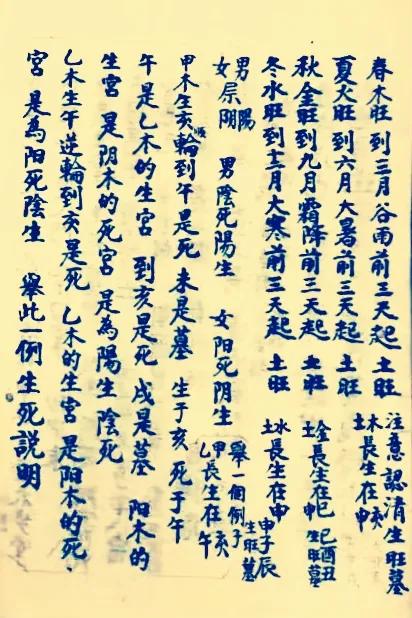 春木旺到三月谷雨前三天起土旺
夏火旺到六月大暑前三天起土旺
秋金旺到九月霜降前三天起土旺
冬水旺到十二月大寒前三天起土旺
男陽女屬陰 男陰死陽生 女阳死阴生
甲木生亥順輪到午是死 未是墓 生于亥 死于午
午是乙木的生宮 到亥是死 戌是墓 阳木的
生宮 是阴木的死宮 是為陽生 陰死
乙木生午逆輪到亥是死 乙木的生宮 是阳木的死.
宮 是為阳死陰生 舉此一例生死説明
注意認清生旺墓
木長生在亥
土長生在申
金長生在巳 巳酉丑
土 生旺墓
水長生在申 申子辰
生旺墓
舉一個例子
甲長生在亥
乙長生在午